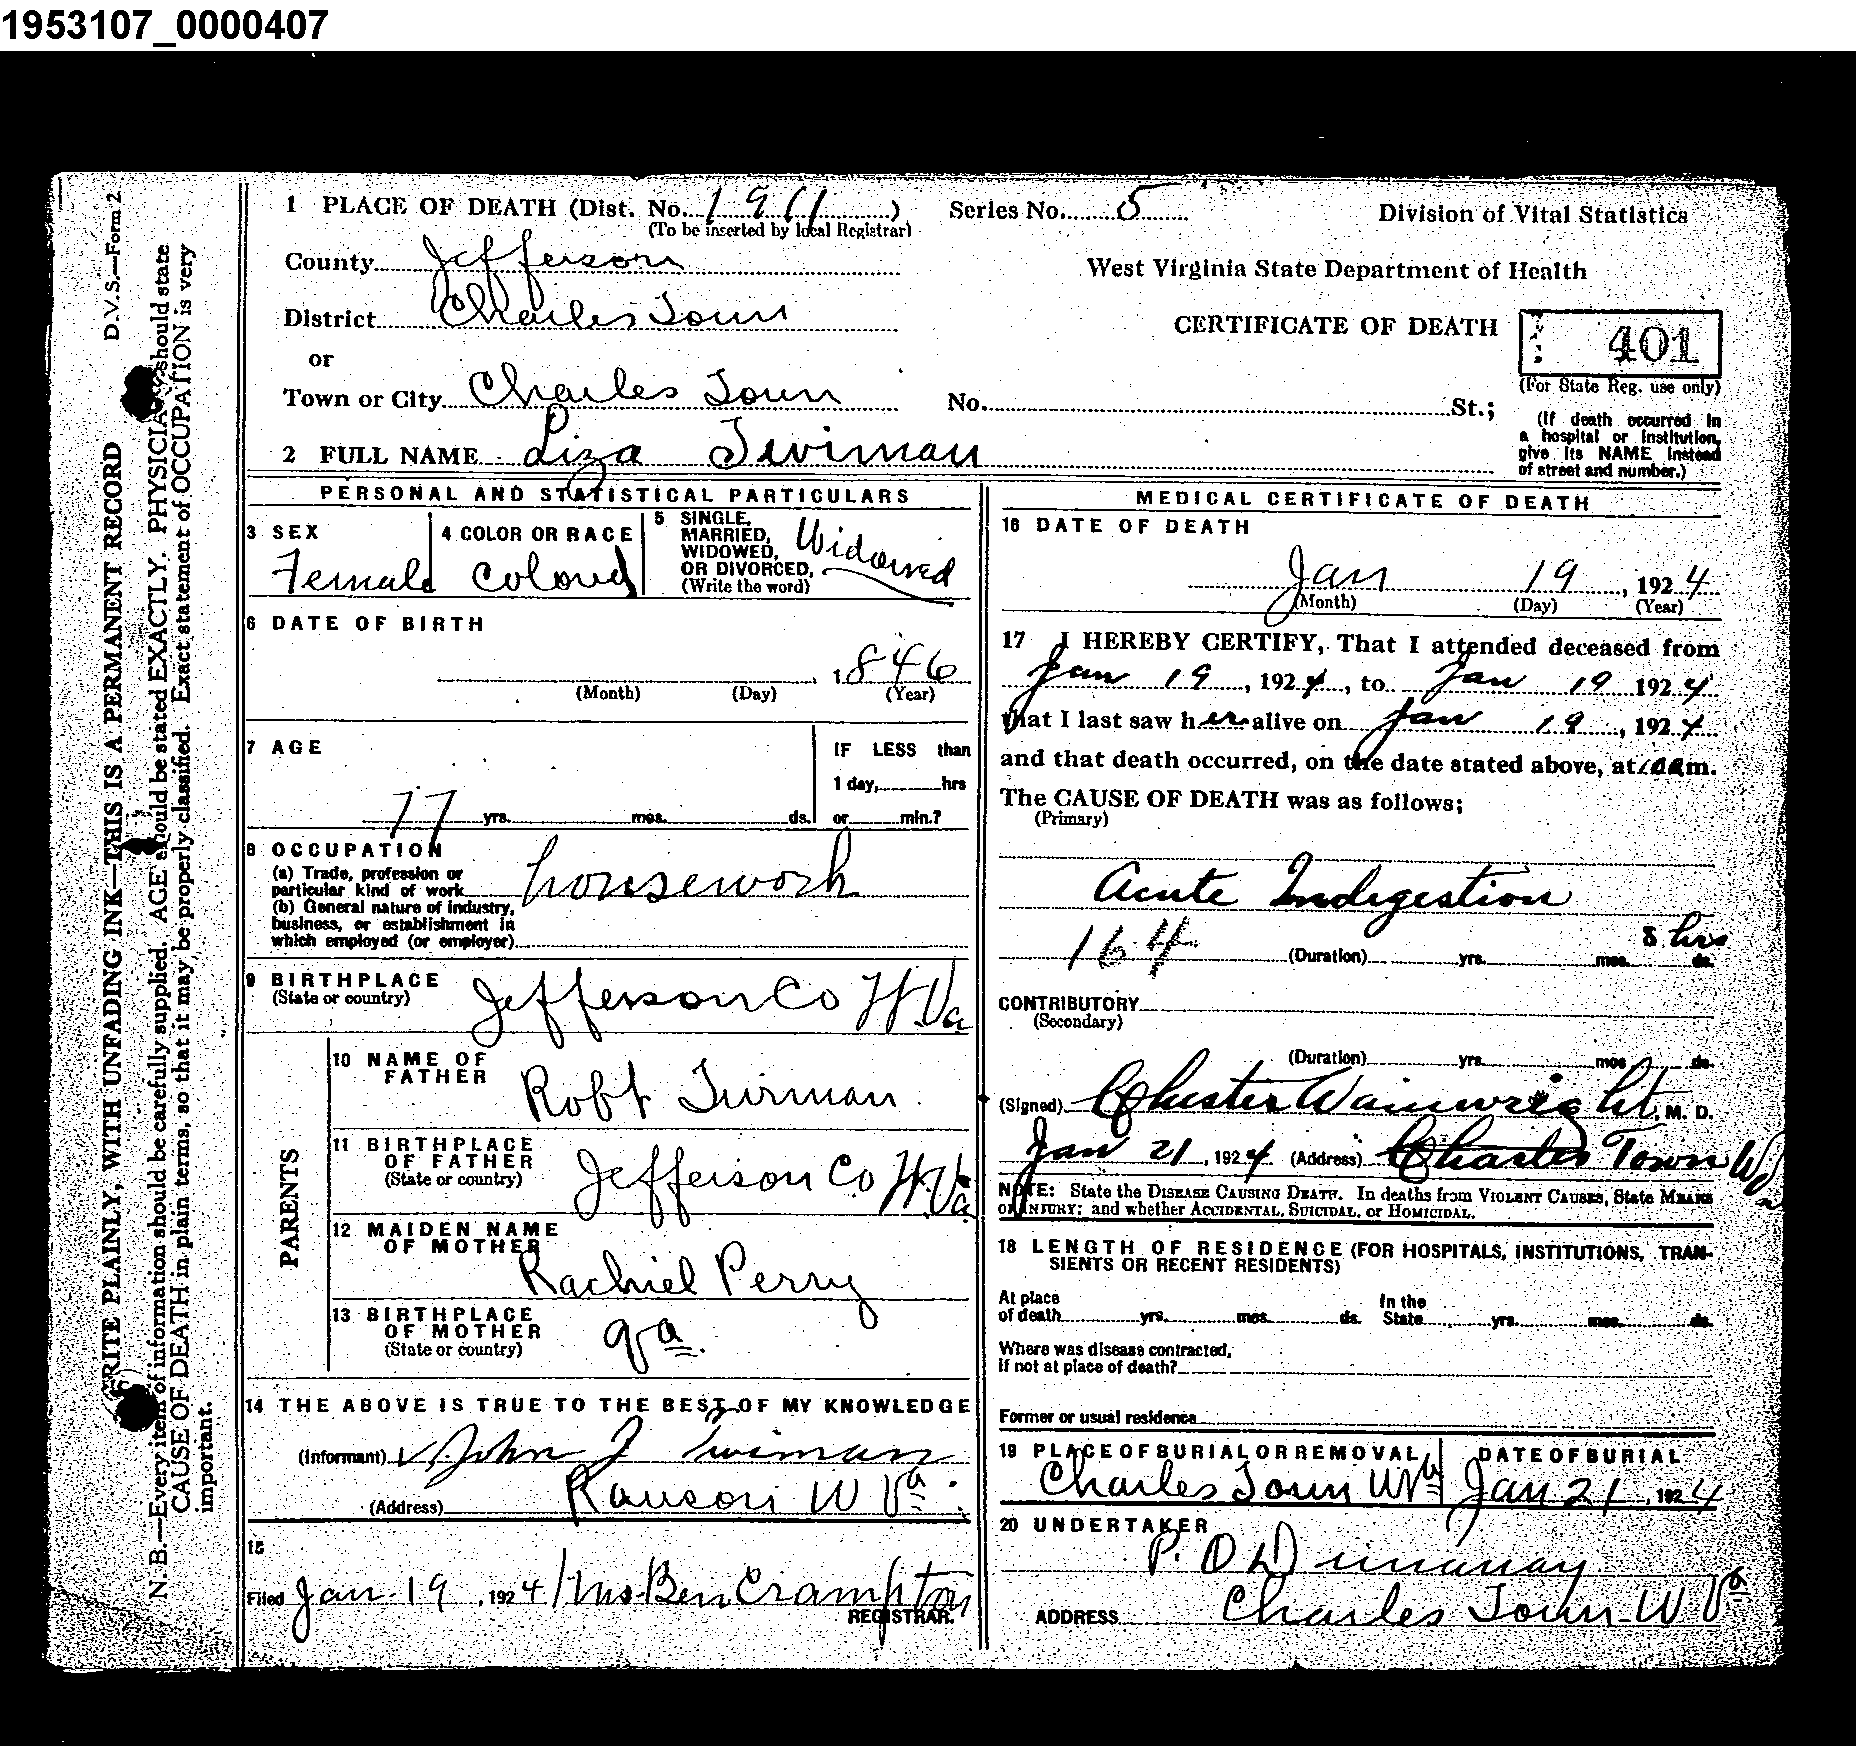 1953107_0000407
D.V.S.—Form 2
WRITE PLAINLY, WITH UNFADING INK—THIS IS A PERMANENT RECORD
N. B.—Every item of information should be carefully supplied. AGE should be stated EXACTLY. PHYSICIAN should state
CAUSE OF DEATH in plain terms, so that it may be properly classified. Exact statement of OCCUPATION is very
important.
1 PLACE OF DEATH (Dist. No. 1911) Series No. 5 Division of Vital Statistics
(To be inserted by local Registrar)
County Jefferson
West Virginia State Department of Health
District Charles Town
CERTIFICATE OF DEATH 401
or
(For State Reg. use only)
Town or City Charles Town No. St.;
(If death occurred in
a hospital or institution,
give its NAME instead
of street and number.)
2 FULL NAME Liza Twiman
PERSONAL AND STATISTICAL PARTICULARS
3 SEX
Female
4 COLOR OR RACE
Colored
5 SINGLE,
MARRIED,
WIDOWED,
OR DIVORCED,
(Write the word)
Widowed
6 DATE OF BIRTH
, 1846
(Month) (Day) (Year)
7 AGE
77 yrs. mos. ds.
IF LESS than
1 day, hrs
or min.?
8 OCCUPATION
(a) Trade, profession or
particular kind of work housework
(b) General nature of industry,
business, or establishment in
which employed (or employer)
9 BIRTHPLACE
(State or country) Jefferson Co W.Va
PARENTS
10 NAME OF
FATHER
Robt Twiman
11 BIRTHPLACE
OF FATHER
(State or country) Jefferson Co W.Va
12 MAIDEN NAME
OF MOTHER
Rachiel Perry
13 BIRTHPLACE
OF MOTHER
(State or country) Va
14 THE ABOVE IS TRUE TO THE BEST OF MY KNOWLEDGE
(Informant) John J Twiman
(Address) Ranson W Va
15
Filed Jan 19, 1924 Mrs Ben Crampton
REGISTRAR.
MEDICAL CERTIFICATE OF DEATH
16 DATE OF DEATH
Jan 19, 1924
(Month) (Day) (Year)
17 I HEREBY CERTIFY, That I attended deceased from
Jan 19, 1924, to Jan 19 1924
that I last saw her alive on Jan 19, 1924
and that death occurred, on the date stated above, at m.
The CAUSE OF DEATH was as follows;
(Primary)
Acute Indigestion
164 (Duration) yrs. mos. 8 hrs ds.
CONTRIBUTORY
(Secondary)
(Duration) yrs. mos ds.
(Signed) Chester Wainwright, M. D.
Jan 21, 1924 (Address) Charles Town W Va
NOTE: State the DISEASE CAUSING DEATH. In deaths from VIOLENT CAUSES, State MEANS
OF INJURY; and whether ACCIDENTAL, SUICIDAL, or HOMICIDAL.
18 LENGTH OF RESIDENCE (FOR HOSPITALS, INSTITUTIONS, TRAN-
SIENTS OR RECENT RESIDENTS)
At place
of death yrs. mos. ds.
In the
State yrs. mos. ds.
Where was disease contracted,
if not at place of death?
Former or usual residence
19 PLACE OF BURIAL OR REMOVAL
Charles Town W Va
DATE OF BURIAL
Jan 21, 1924
20 UNDERTAKER
P. O Dunaway
ADDRESS Charles Town W Va